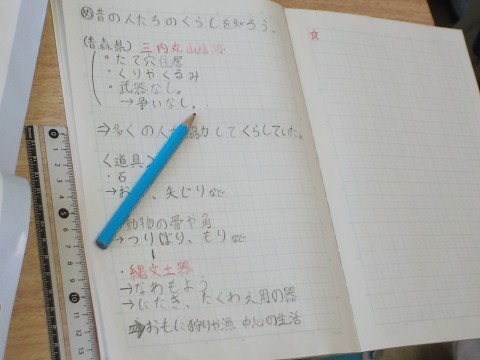 め 昔の人たちのくらしを知ろう。
(青森県) 三内丸山遺跡
・たて穴住居
・くりやくるみ
・武器なし。
→争いなし。
⇒多くの人が協力してくらしていた。
〈道具〉
・石
→お、矢じりなど
動物の骨や角
→つりばり、もりなど
・縄文土器
→なわもよう
→にたき、たくわえ用の器
⇒おもに狩りや漁中心の生活
0
5
10